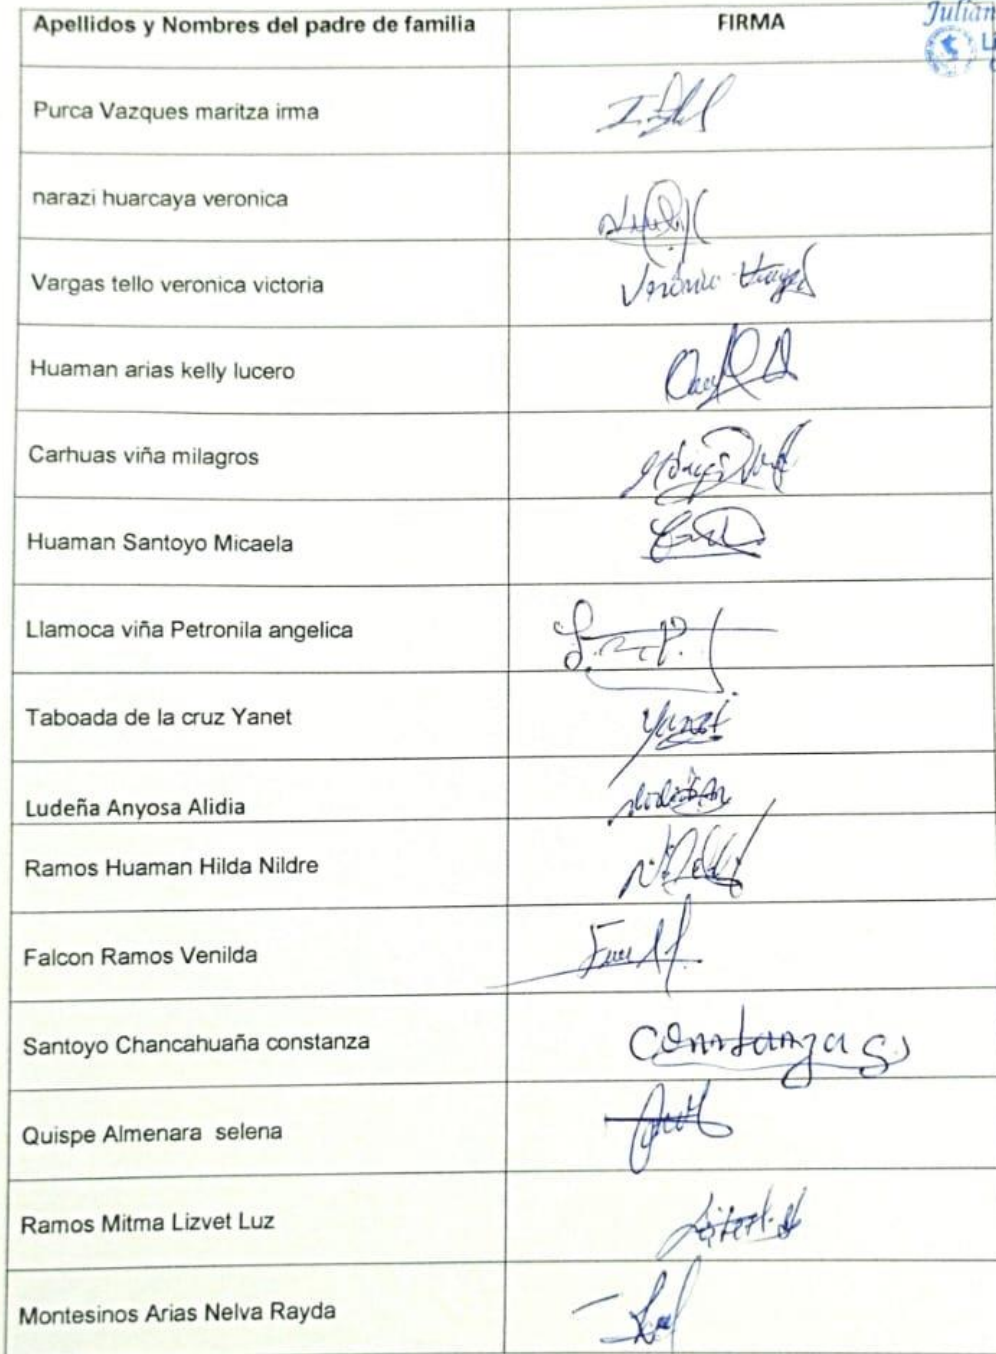 Apellidos y Nombres del padre de familia FIRMA
Purca Vazques maritza irma
narazi huarcaya veronica
Vargas tello veronica victoria
Huaman arias kelly lucero
Carhuas viña milagros
Huaman Santoyo Micaela
Llamoca viña Petronila angelica
Taboada de la cruz Yanet Yanet
Ludeña Anyosa Alidia
Ramos Huaman Hilda Nildre
Falcon Ramos Venilda
Santoyo Chancahuaña constanza Constanza S
Quispe Almenara selena
Ramos Mitma Lizvet Luz
Montesinos Arias Nelva Rayda